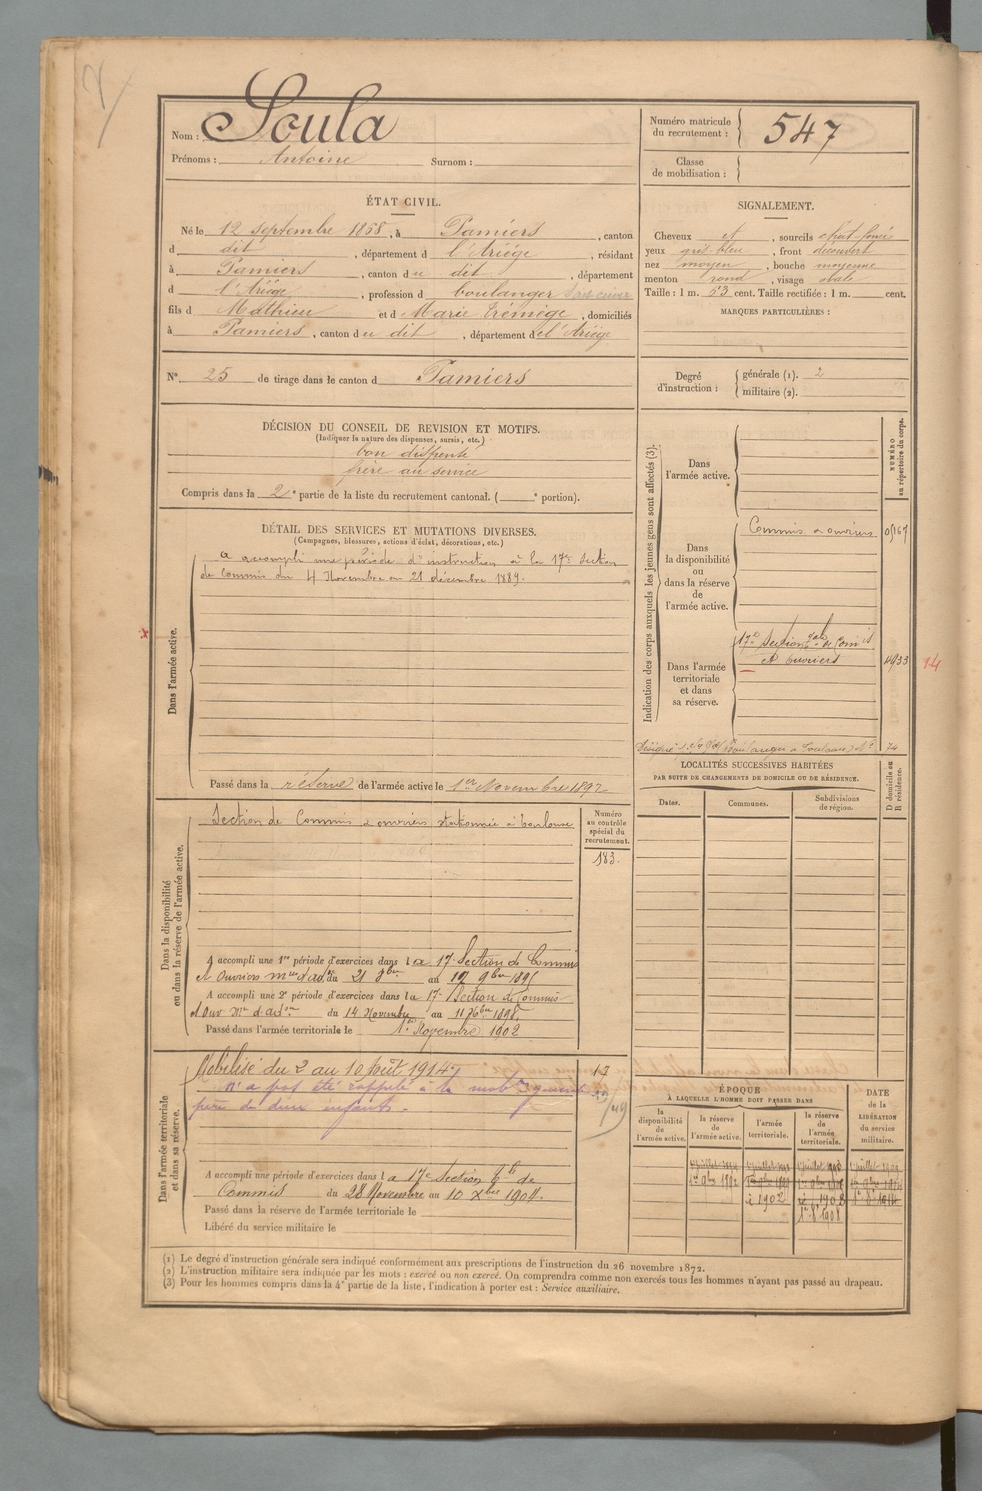 Nom : Soula
Prénoms : Antoine Surnom :
Numéro matricule du recrutement : 547
Classe de mobilisation :
ÉTAT CIVIL.
Né le 12 septembre 1868, à Pamiers, canton
d dit, département d l'Ariége, résidant
à Pamiers, canton du dit, département
d l'Ariége, profession d boulanger
fils d Mathieu et d Marie Trémège, domiciliés
à Pamiers, canton du dit, département de l'Ariége
N° 25 de tirage dans le canton d Pamiers
SIGNALEMENT.
Cheveux et, sourcils chat. foncé
yeux gris-bleu, front découvert
nez moyen, bouche moyenne
menton rond, visage ovale
Taille : 1 m. 53 cent. Taille rectifiée : 1 m. cent.
MARQUES PARTICULIÈRES :
Degré d'instruction : générale (1). 2
militaire (2).
DÉCISION DU CONSEIL DE REVISION ET MOTIFS.
(Indiquer la nature des dispenses, sursis, etc.)
bon dispensé
frère au service
Compris dans la 2e partie de la liste du recrutement cantonal. ( e portion).
DÉTAIL DES SERVICES ET MUTATIONS DIVERSES.
(Campagnes, blessures, actions d'éclat, décorations, etc.)
Dans l'armée active.
a accompli une période d'instruction à la 17e Section
de Commis du 4 Novembre au 21 décembre 1889.
Passé dans la réserve de l'armée active le 1er Novembre 1892
Indication des corps auxquels les jeunes gens sont affectés (3).
NUMÉRO au répertoire du corps.
Dans l'armée active.
Dans la disponibilité ou dans la réserve de l'armée active.
Commis & ouvriers
Dans l'armée territoriale et dans sa réserve.
17e Section de Comis
et ouvriers
4933
14
74
LOCALITÉS SUCCESSIVES HABITÉES
PAR SUITE DE CHANGEMENTS DE DOMICILE OU DE RÉSIDENCE.
Dates. Communes. Subdivisions de région. D domicile ou R résidence.
Dans la disponibilité ou dans la réserve de l'armée active.
Section de Commis & ouvriers stationnée à Toulouse
Numéro au contrôle spécial du recrutement.
183.
A accompli une 1re période d'exercices dans la 17e Section de Commis
et Ouvriers mres d'adon du 21 8bre au 17 9bre 1895
A accompli une 2e période d'exercices dans la 17e Section de Commis
et Ouv. Mres d'adon du 14 Novembre au 11 Xbre 1898.
Passé dans l'armée territoriale le 1er Novembre 1902
Dans l'armée territoriale et dans sa réserve.
Mobilisé du 2 au 10 Août 1914
n'a pas été rappelé à la mobon générale
père de deux enfants.
13
A accompli une période d'exercices dans la 17e Section tle de
Commis du 28 Novembre au 10 Xbre 1904.
Passé dans la réserve de l'armée territoriale le
Libéré du service militaire le
ÉPOQUE
À LAQUELLE L'HOMME DOIT PASSER DANS
la disponibilité de l'armée active.
la réserve de l'armée active.
l'armée territoriale.
la réserve de l'armée territoriale.
DATE de la LIBÉRATION du service militaire.
1er 9bre 1892
1902
1908
(1) Le degré d'instruction générale sera indiqué conformément aux prescriptions de l'instruction du 26 novembre 1872.
(2) L'instruction militaire sera indiquée par les mots : exercé ou non exercé. On comprendra comme non exercés tous les hommes n'ayant pas passé au drapeau.
(3) Pour les hommes compris dans la 4e partie de la liste, l'indication à porter est : Service auxiliaire.